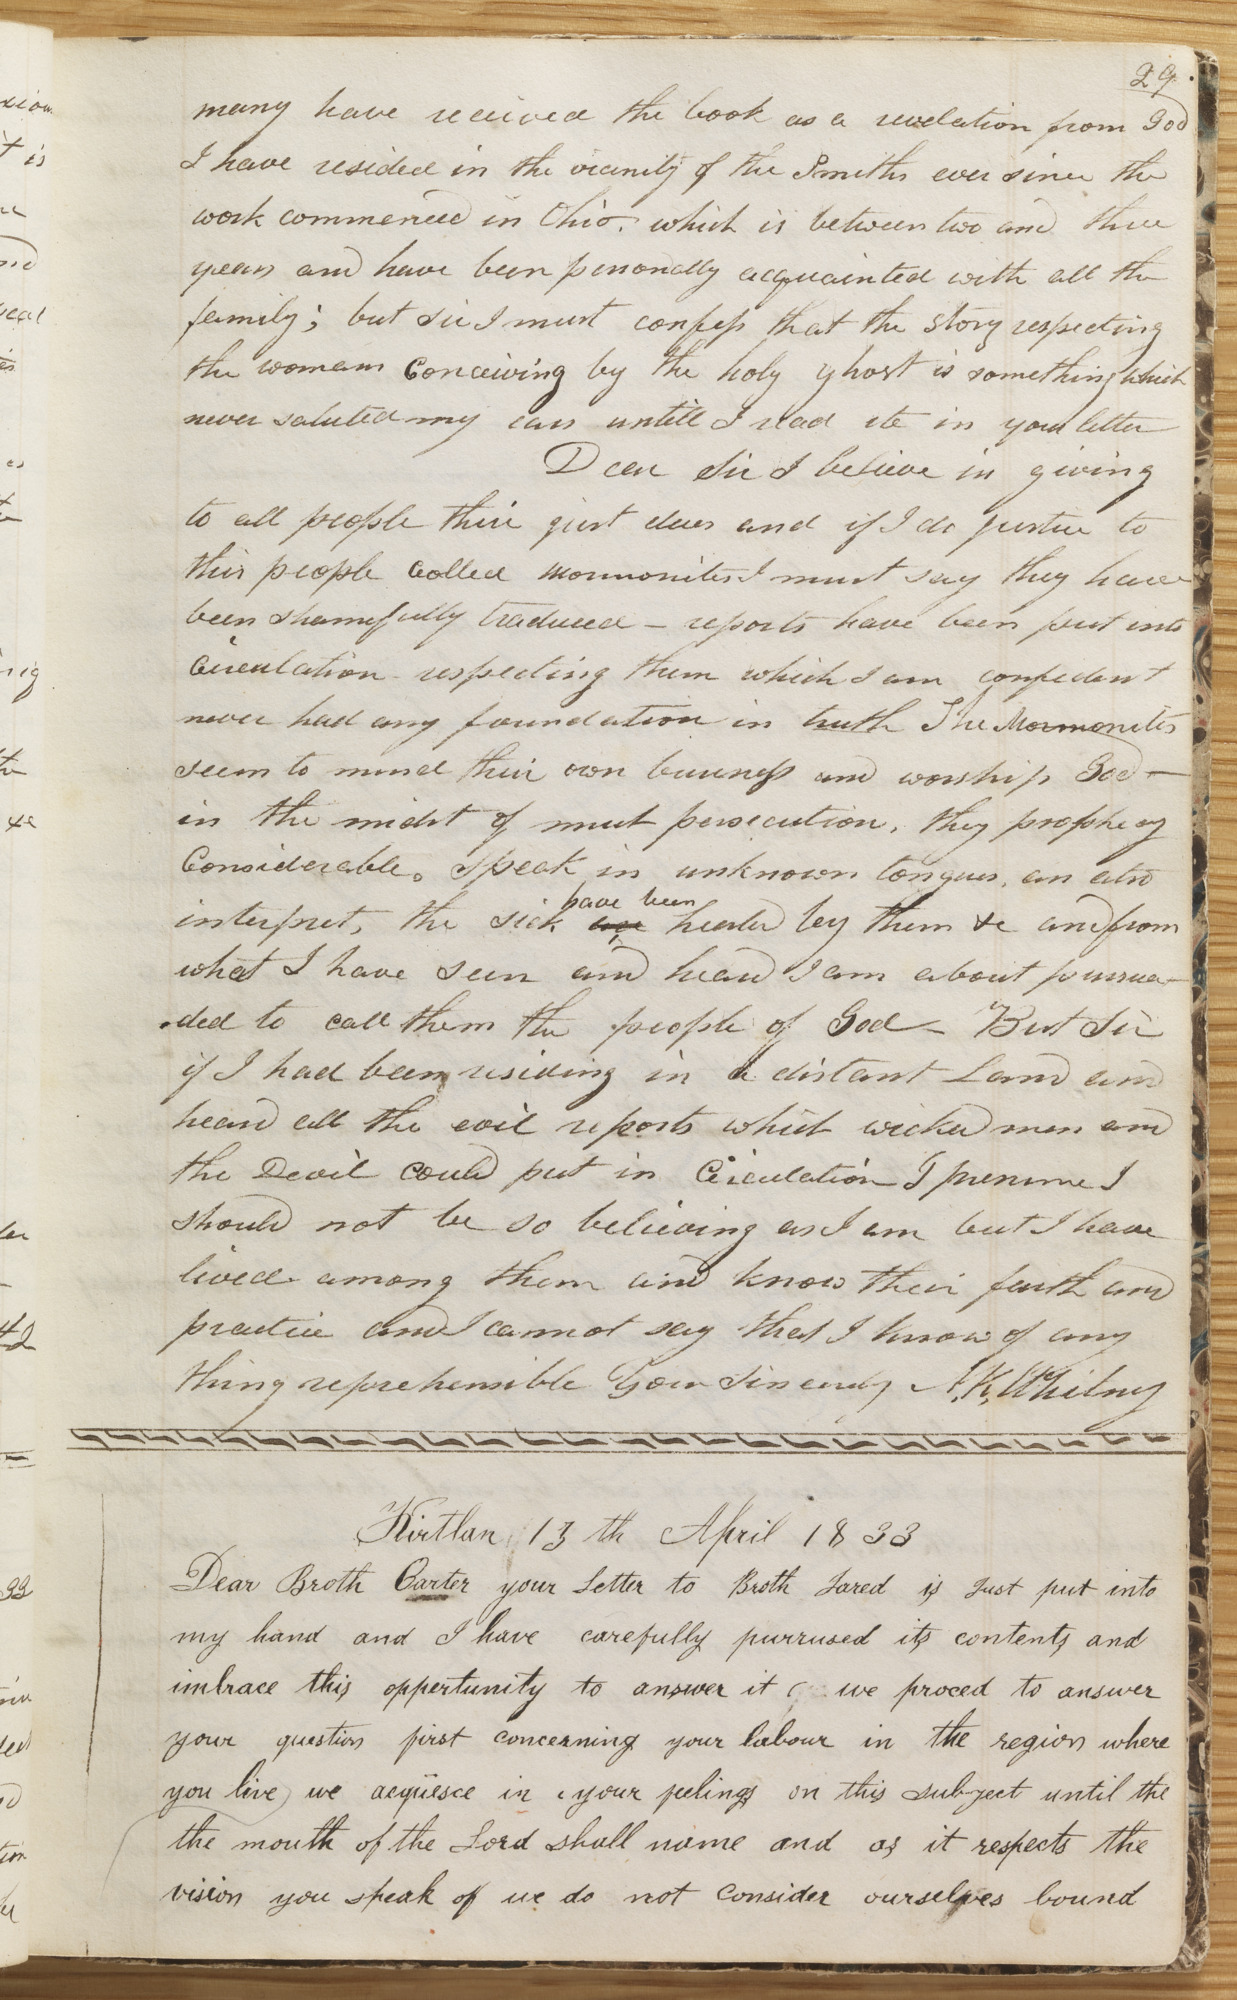 29.
many have received the book as a revelation from God
I have resided in the vicinity of the Smiths ever since the
work commenced in Ohio. which is between two and three
years and have been personally acquainted with all the
family; but sir I must confess that the story respecting
the womans Conceiving by the holy ghost is something which
never saluted my ears untill I read ite in your letter
Dear Sir I believe in giving
to all people their just dues and if I do justice to
this people Called Mormonites I must say they have
been shamefully traduced — reports have been put into
Circulation respecting them which I am confedant
never had any foundation in truth The Mormonites
seem to mind their own business and worship God —
in the midst of much persecution, they prophecy
Considerable. speak in unknown tongues, an also
have been
interpret, the sick are healed by them &c and from
what I have seen and heard I am about pursua-
ded to call them the people of God — But Sir
if I had been residing in a distant Land and
heard all the evil reports which wicked men and
the Devil could put in Circulation I presume I
should not be so believing as I am but I have
lived among them and know their faith and
practice and I cannot say that I know of any
thing reprehensible Your Sincerely N. K. Whitney
Kirtlan 13th April 1833
Dear Broth Carter your Letter to Broth Jared is Just put into
my hand and I have carefully purrused its contents and
imbrace this oppertunity to answer it we proced to answer
your question first concerning your labour in the region where
you live we acquesce in your feelings on this subject until the
the mouth of the Lord shall name and as it respects the
vision you speak of we do not consider ourselves bound